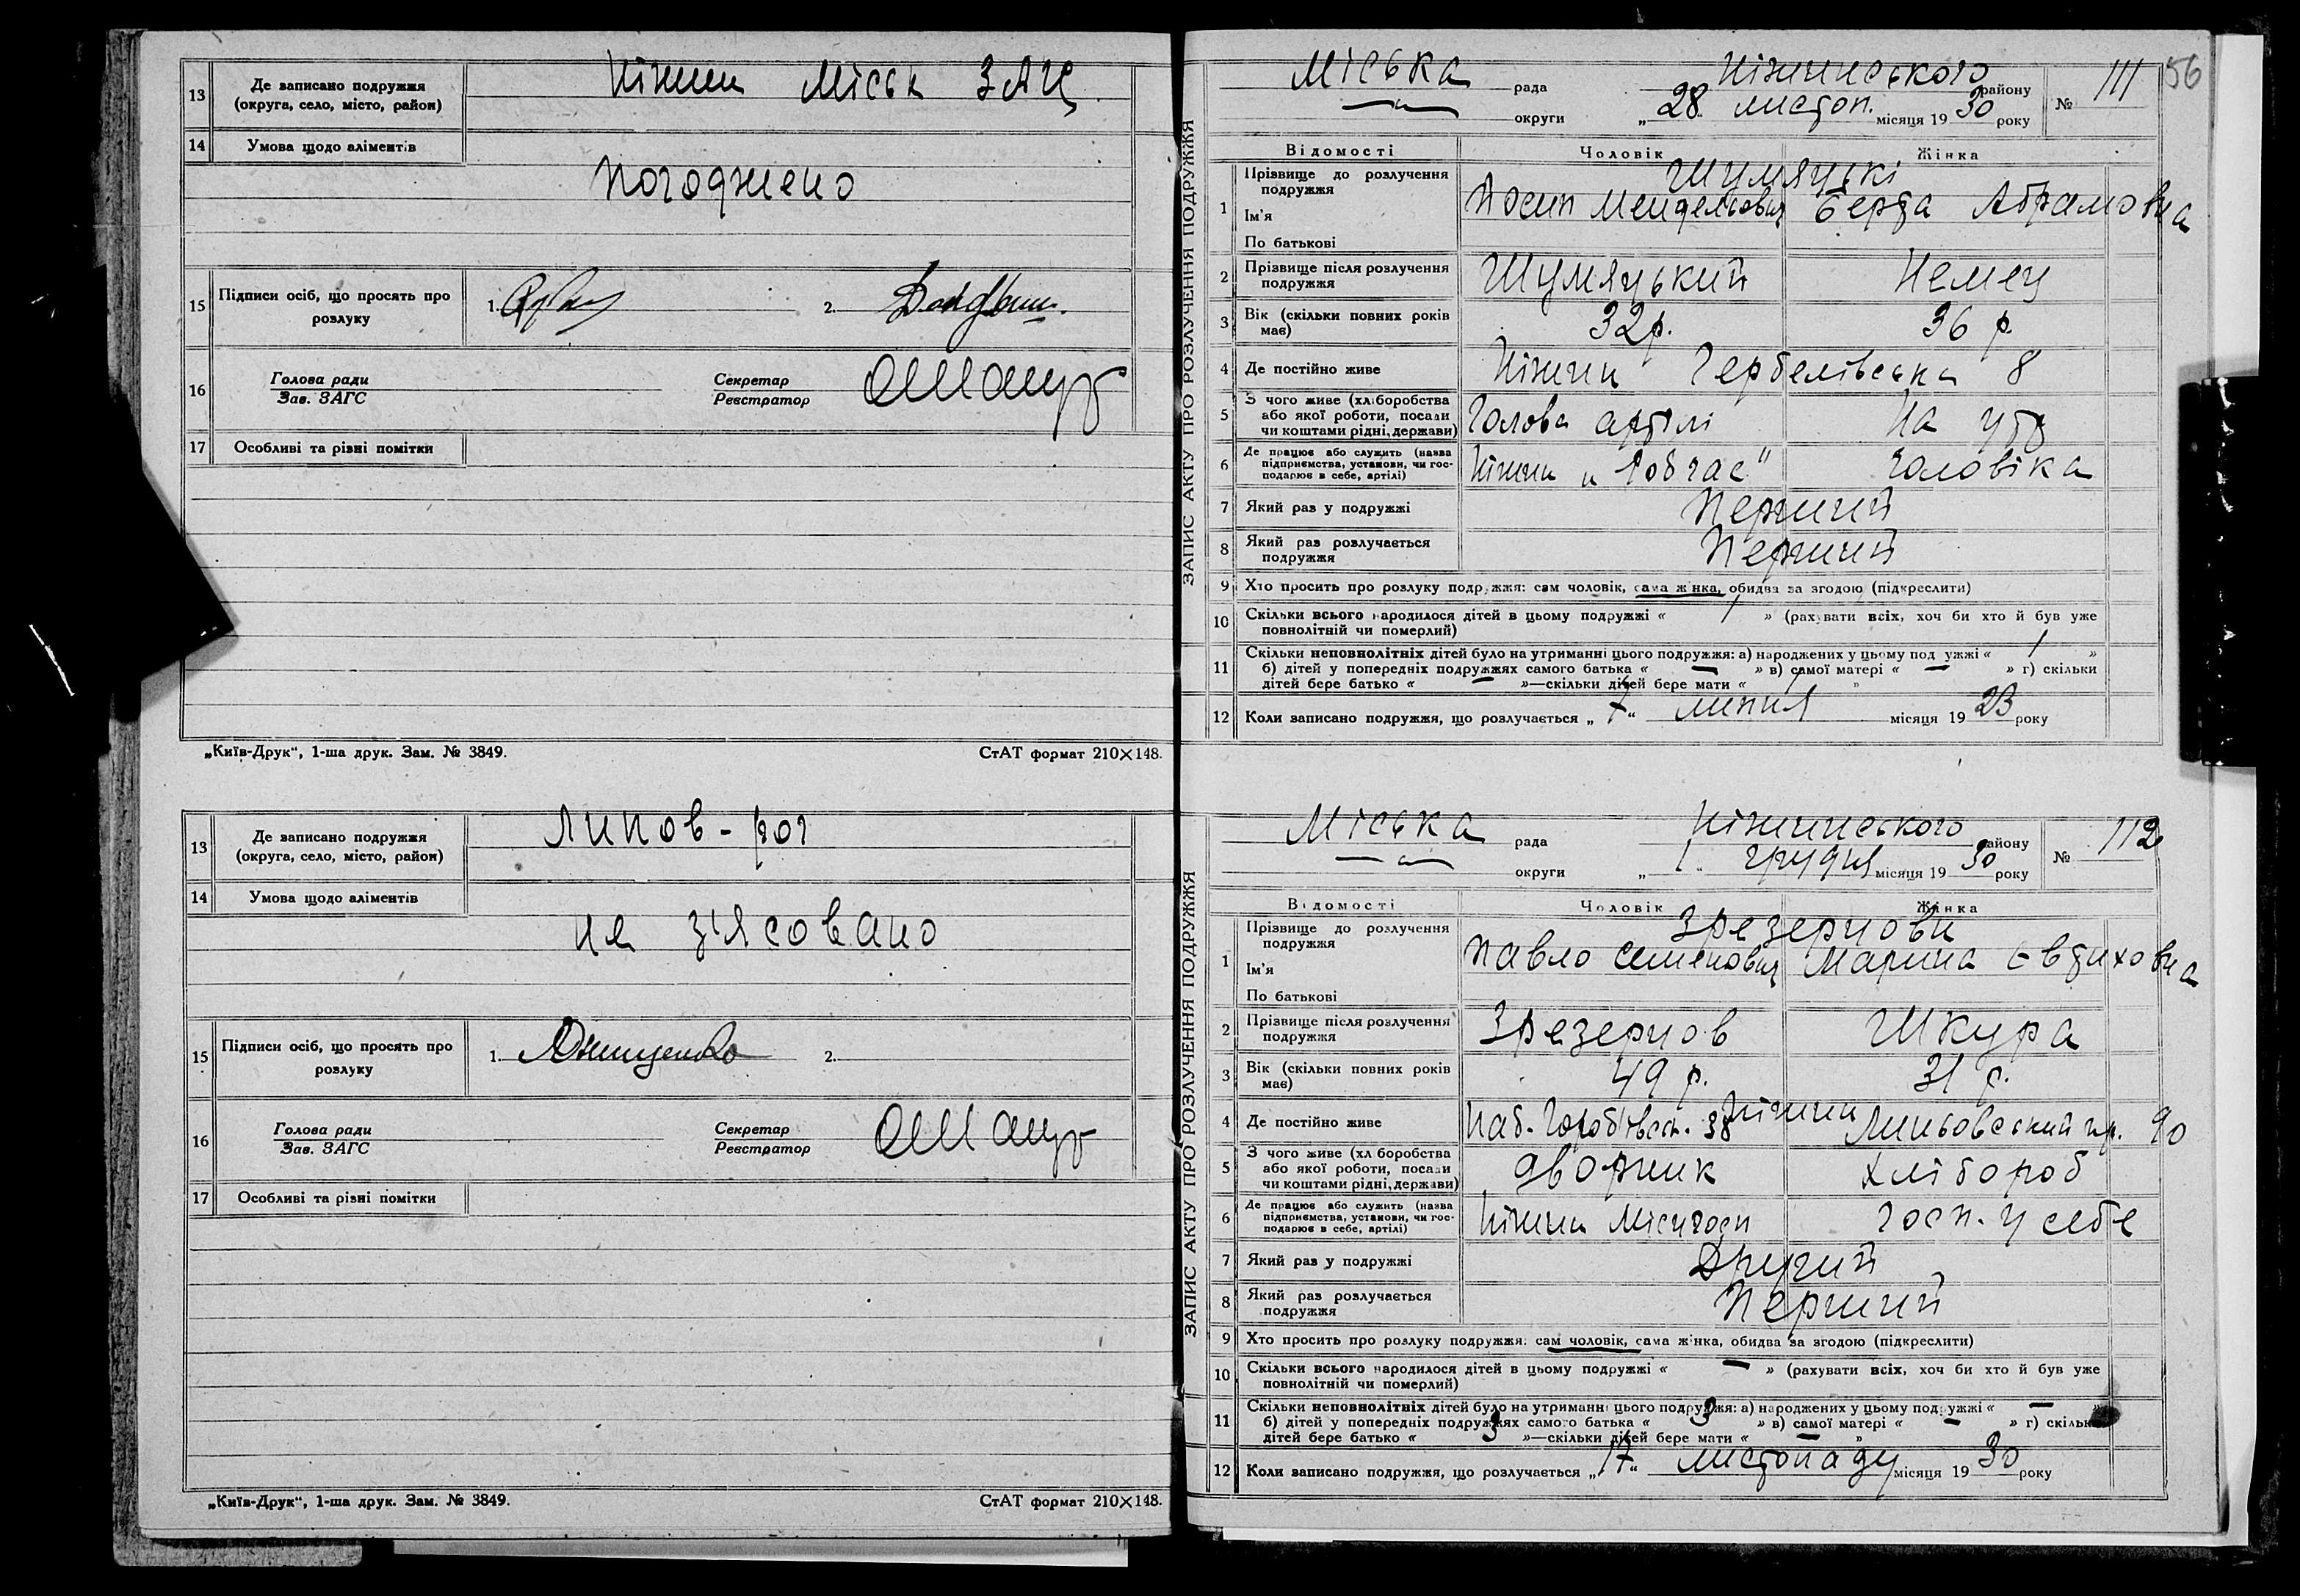 13 Де записано подружжя (округа, село, місто, район) Ніжин Міськ ЗАЦ
14 Умова щодо аліментів
погоджено
15 Підписи осіб, що просять про розлуку 1. 2.
16 Голова ради Зав. ЗАГС Секретар Реєстратор
17 Особливі та різні помітки
„Київ-Друк“, 1-ша друк. Зам. № 3849. СтАТ формат 210×148.
13 Де записано подружжя (округа, село, місто, район) Липов-рог
14 Умова щодо аліментів
не з'ясовано
15 Підписи осіб, що просять про розлуку 1. 2.
16 Голова ради Зав. ЗАГС Секретар Реєстратор
17 Особливі та різні помітки
„Київ-Друк“, 1-ша друк. Зам. № 3849. СтАТ формат 210×148.
56
ЗАПИС АКТУ ПРО РОЗЛУЧЕННЯ ПОДРУЖЖЯ
Міська рада Ніжинського району № 111
округи „28“ листоп. місяця 1930 року
Відомості Чоловік Жінка
1 Прізвище до розлучення подружжя Шумяцькі
Ім'я По батькові Йосип Мендельович Берта Абрамовна
2 Прізвище після розлучення подружжя Шумяцький Немец
3 Вік (скільки повних років має) 32 р. 36 р
4 Де постійно живе Ніжин Гербелівська 8
5 З чого живе (хліборобства або якої роботи, посади чи коштами рідні, держави) Голова артілі На утр
6 Де працює або служить (назва підприємства, установи, чи господарює в себе, артілі) Ніжин „ Робчас" чоловіка
7 Який раз у подружжі Перший
8 Який раз розлучається подружжя Перший
9 Хто просить про розлуку подружжя: сам чоловік, сама жінка, обидва за згодою (підкреслити)
10 Скільки всього народилося дітей в цьому подружжі « 1 » (рахувати всіх, хоч би хто й був уже повнолітній чи померлий)
11 Скільки неповнолітніх дітей було на утриманні цього подружжя: а) народжених у цьому подружжі « 1 »
б) дітей у попередніх подружжях самого батька « — » в) самої матері « — » г) скільки
дітей бере батько « — »—скільки дітей бере мати « 1 »
12 Коли записано подружжя, що розлучається „7“ липня місяця 1923 року
ЗАПИС АКТУ ПРО РОЗЛУЧЕННЯ ПОДРУЖЖЯ
Міська рада Ніжинського району № 112
округи „1“ грудня місяця 1930 року
Відомості Чоловік Жінка
1 Прізвище до розлучення подружжя Зрезерцови
Ім'я По батькові Павло Семенович Марина Євтиховна
2 Прізвище після розлучення подружжя Зрезерцов Шкура
3 Вік (скільки повних років має) 49 р. 31 р.
4 Де постійно живе 38 Ніжин 90
5 З чого живе (хліборобства або якої роботи, посади чи коштами рідні, держави) дворник хлібороб
6 Де працює або служить (назва підприємства, установи, чи господарює в себе, артілі) Ніжин Міськгосп госп. у себе
7 Який раз у подружжі Другий
8 Який раз розлучається подружжя Перший
9 Хто просить про розлуку подружжя: сам чоловік, сама жінка, обидва за згодою (підкреслити)
10 Скільки всього народилося дітей в цьому подружжі « — » (рахувати всіх, хоч би хто й був уже повнолітній чи померлий)
11 Скільки неповнолітніх дітей було на утриманні цього подружжя: а) народжених у цьому подружжі « — »
б) дітей у попередніх подружжях самого батька « 3 » в) самої матері « — » г) скільки
дітей бере батько « 3 »—скільки дітей бере мати « — »
12 Коли записано подружжя, що розлучається „17“ листопаду місяця 1930 року